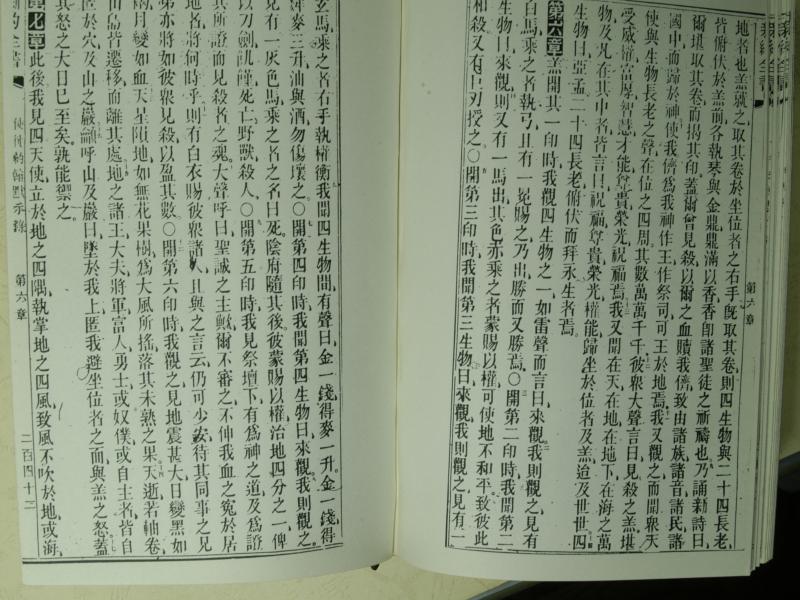 第六章
地者也、羔就之、取其卷於坐位者之右手、旣取其卷、則四生物與二十四長老
皆俯伏於羔前、各執琴與金鼎、鼎滿以香、香卽諸聖徒之祈禱也、乃誦新詩曰、
爾堪取其卷、而揭其印、蓋爾曾見殺、以爾之血贖我儕、致由諸族諸音諸民諸
國中而歸於神、使我儕爲我神作王作祭司、可王於地焉、我又觀之、而聞衆天
使與生物長老之聲、在位之四周、其數萬萬千千、彼衆大聲言曰、見殺之羔、堪
受威權富厚智慧才能尊貴榮光祝福焉、我又聞在天在地在地下在海之萬
物、及凡在其中者、皆言曰、祝福尊貴榮光權能、歸坐於位者及羔、迨及世世、四
生物曰、亞孟、二十四長老俯伏而拜永生者焉、
第六章 羔開其一印時、我觀四生物之一、如雷聲而言曰、來觀、我則觀之、見有
白馬、乘之者執弓、且有一冕賜之、乃出、勝而又勝焉、○開第二印時、我聞第二
生物曰、來觀、則又有一馬出、其色赤、乘之者蒙賜以權、可使地不和平、致彼此
相殺、又有巨刃授之、○開第三印時、我聞第三生物曰、來觀、我則觀之、見有一
玄馬、乘之者右手執權衡、我聞四生物間有聲曰、金一錢得麥一升、金一錢得
麥三升、油與酒勿傷壞之、○開第四印時、我聞第四生物曰、來觀、我則觀之、
見有一灰色馬、乘之者之名曰死、陰府隨其後、彼蒙賜以權、治地四分之一、俾
以刀劍饑饉死亡野獸殺人、○開第五印時、我見祭壇下、有爲神之道、及爲證
其所證而見殺者之魂、大聲呼曰、聖誠之主歟、爾不審之、不伸我血之冤於居
地者、將何時乎、則有白衣賜彼衆、且與之言云、仍可少安、待其同事之兄
弟、亦將如彼衆見殺以盈其數、○開第六印時、我觀之、見地震甚大、日變黑如
月變如血、天星隕地、如無花果樹爲大風所搖、落其未熟之果、天逝若軸卷、
山島皆遷移、而離其處、地之諸王大夫將軍富人勇士、或奴僕、或自主者、皆自
於穴及山之巖、呼山及巖曰、墜於我上、匿我避坐位者之面、與羔之怒、蓋
其怒之大日已至矣、孰能禦之、
第七章 此後我見四天使立於地之四隅、執掌地之四風、致風不吹於地或海
第六章
二百四十二